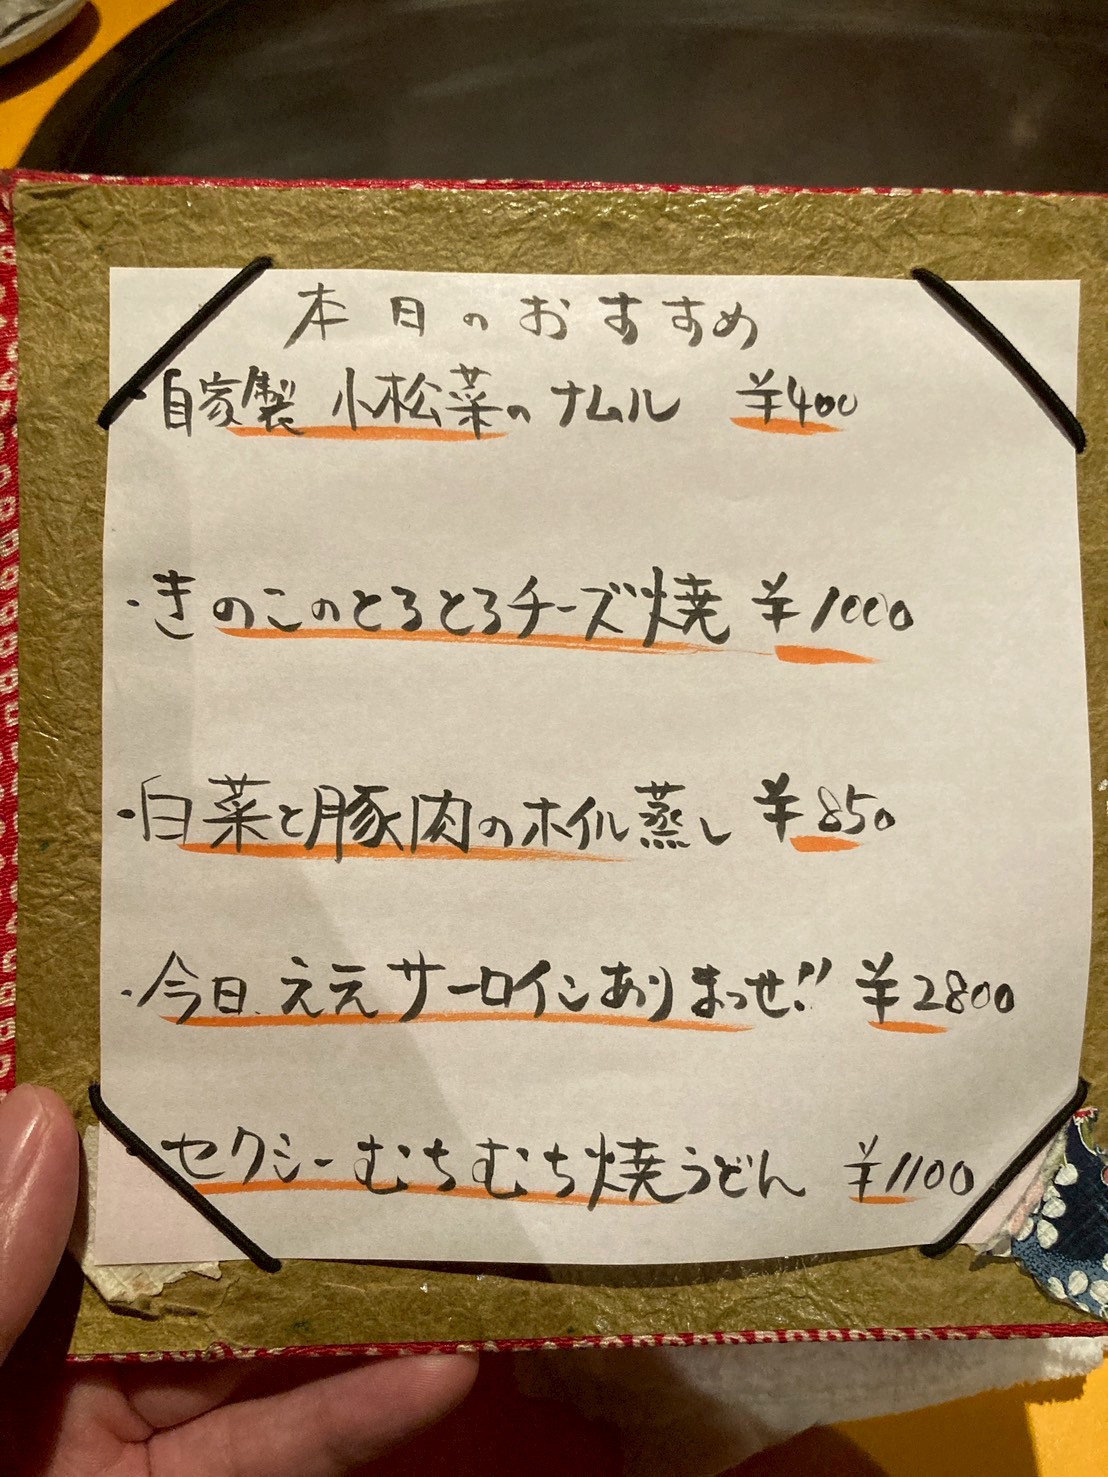 本日のおすすめ
・自家製 小松菜のナムル ¥400
・きのこのとろとろチーズ焼 ¥1000
・白菜と豚肉のホイル蒸し ¥850
・今日、ええサーロインありまっせ!! ¥2800
・セクシーむちむち焼うどん ¥1100